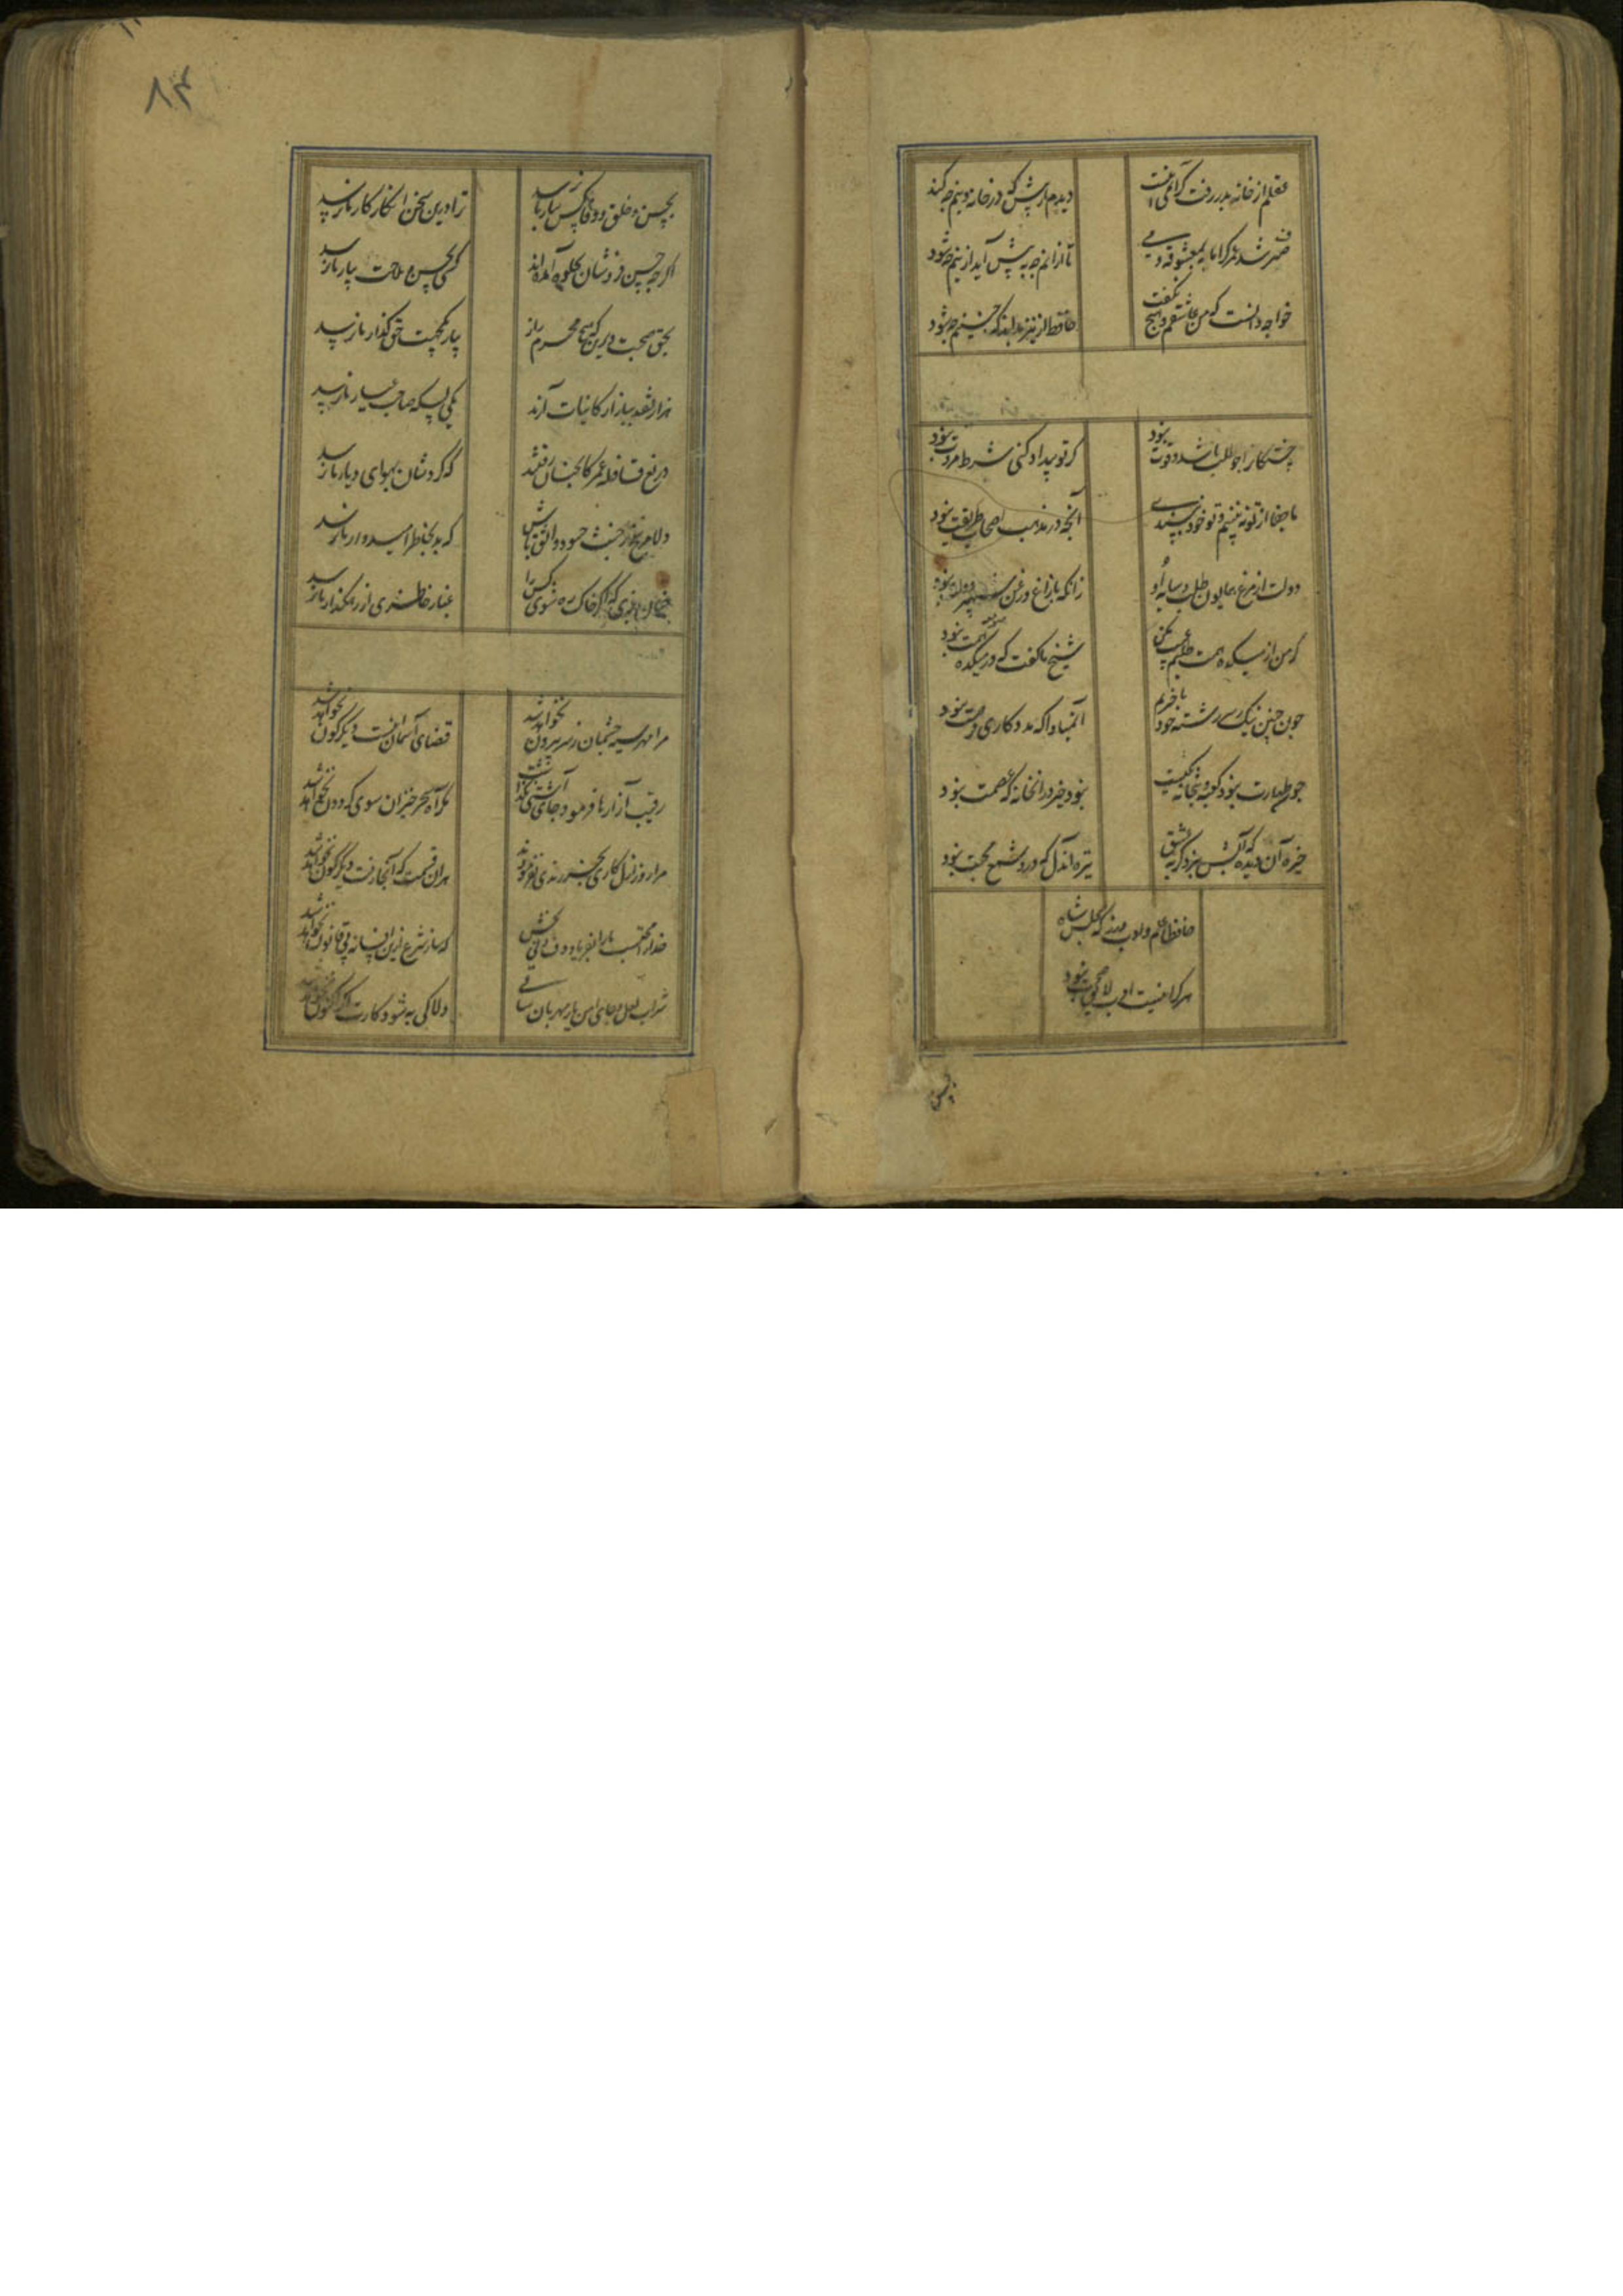 عقلم از خانه بدر رفت کرمی اینست
دیدم از پیش که در خانه دینم چه کند
صرف شد عمر کرانمایه بمعشوقه و می
تا از انم چه به پیش آید ازینم چه شود
خواجه دانست که من عاشقم و هیچ نکفت
حافظ ار نیز بداند که چنینم چه شود
خستکانرا چو طلب باشد و قوت نبود
کر تو بیداد کنی شرط مروت نبود
ما جفا از تو نه بینیم و تو خود نپسندی
آنچه در مذهب اصحاب طریقت نبود
دولت از مرغ همایون طلب و سایه او
زانکه با زاغ و زغن شهپر دولت نبود
کر من از میکده همت طلبم عیب مکن
شیخ ما کفت که در میکده همت نبود
چون چنین نیک ز سررشته خود باخبریم
آنمبادا که مددکاری فرصت نبود
چون طهارت نبود کعبه و بتخانه یکیست
نبود خیر در انخانه که عصمت نبود
خیره آن دیده که آبش نبرد کریه عشق
تیره آندل که درو شمع محبت نبود
حافظا علم و ادب ورز که در مجلس شاه
هرکرا نیست ادب لایق صحبت نبود
بحسن
۸۴
بحسن و خلق و وفا کس بیار ما نرسد
ترا درین سخن انکار کار ما نرسد
اکرچه حسن فروشان بجلوه آمده اند
کسی بحسن و ملاحت بیار ما نرسد
بحق صحبت دیرین که هیچ محرم راز
بیار یکجهت حق کذار ما نرسد
هزار نقد ببازار کاینات آرند
یکی بسکه صاحب عیار ما نرسد
دریغ قافله عمر کانچنان رفتند
که کردشان بهوای دیار ما نرسد
دلا مرنج ز خبث حسود و واثق باش
که بد بخاطر امیدوار ما نرسد
چنان بزی که اکر خاک ره شوی کس را
غبار خاطری از رهکذار ما نرسد
مرا مهر سیه چشمان ز سر بیرون نخواهد شد
قضای آسمان اینست دیکرکون نخواهد شد
رقیب آزارها فرمود و جای آشتی نکذاشت
مکر آه سحرخیزان سوی کردون نخواهد شد
مرا روز ازل کاری بجز رندی نفرمودند
هران قسمت که آنجا رفت دیکرکون نخواهد شد
خدارا محتسب مارا بفریاد دف و نی بخش
که ساز شرع ازین افسانه بی قانون نخواهد شد
شراب لعل و جای امن و یار مهربان ساقی
دلا کی به شود کارت اکر اکنون نخواهد شد